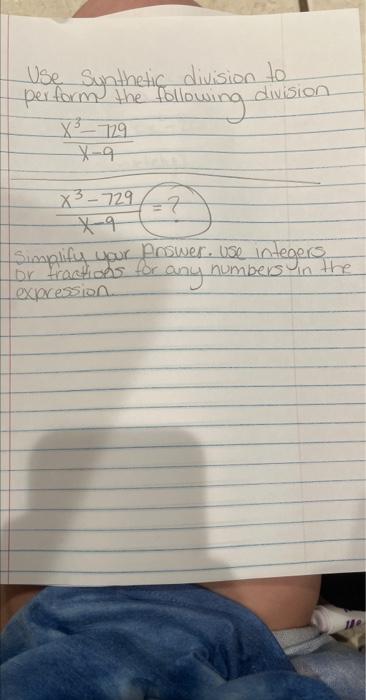 Use Synthetic division to
perform the following division
x³-729
x-9
x³-729
x-9
=?
Simplify your Answer. Use integers
or fractions for any numbers in the
expression.